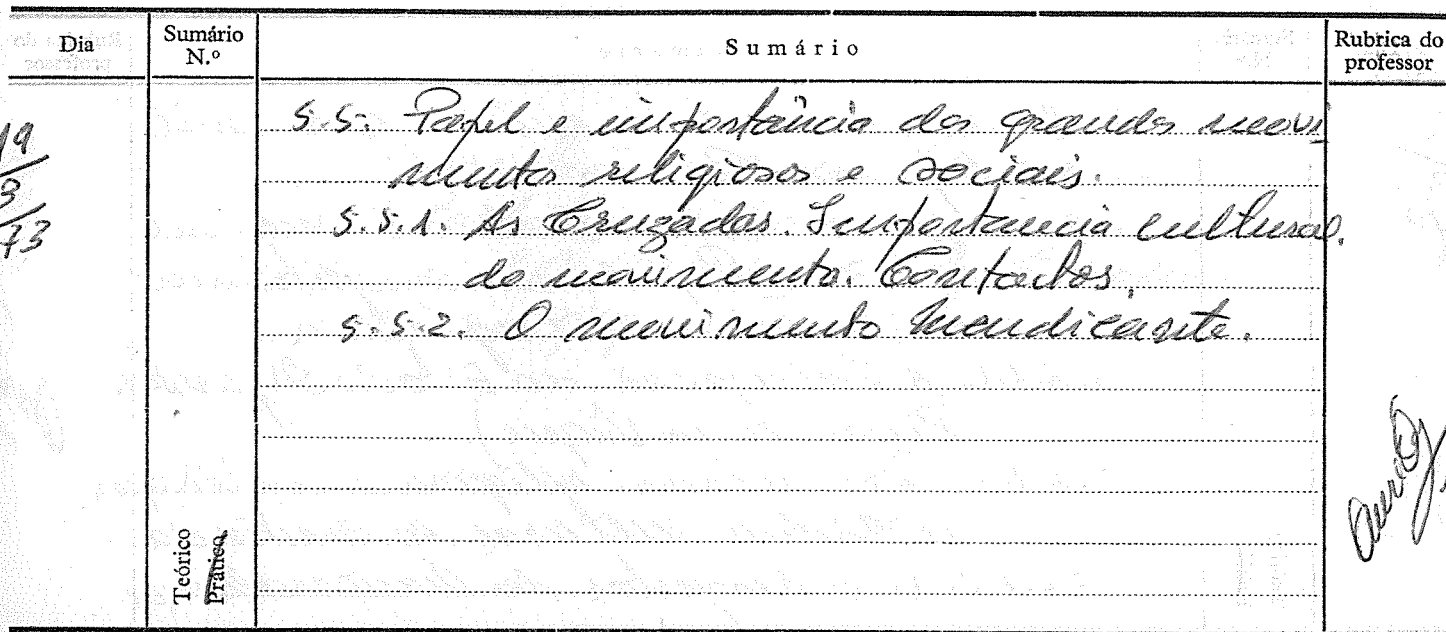 Dia
Sumário N.º
Sumário
Rubrica do professor
19
3
73
5.5. Papel e importância dos grandes movi
mentos religiosos e sociais.
5.5.1. As Cruzadas. Importancia cultural
do movimento. Contactos.
5.5.2. O movimento mendicante.
Teórico
Prático